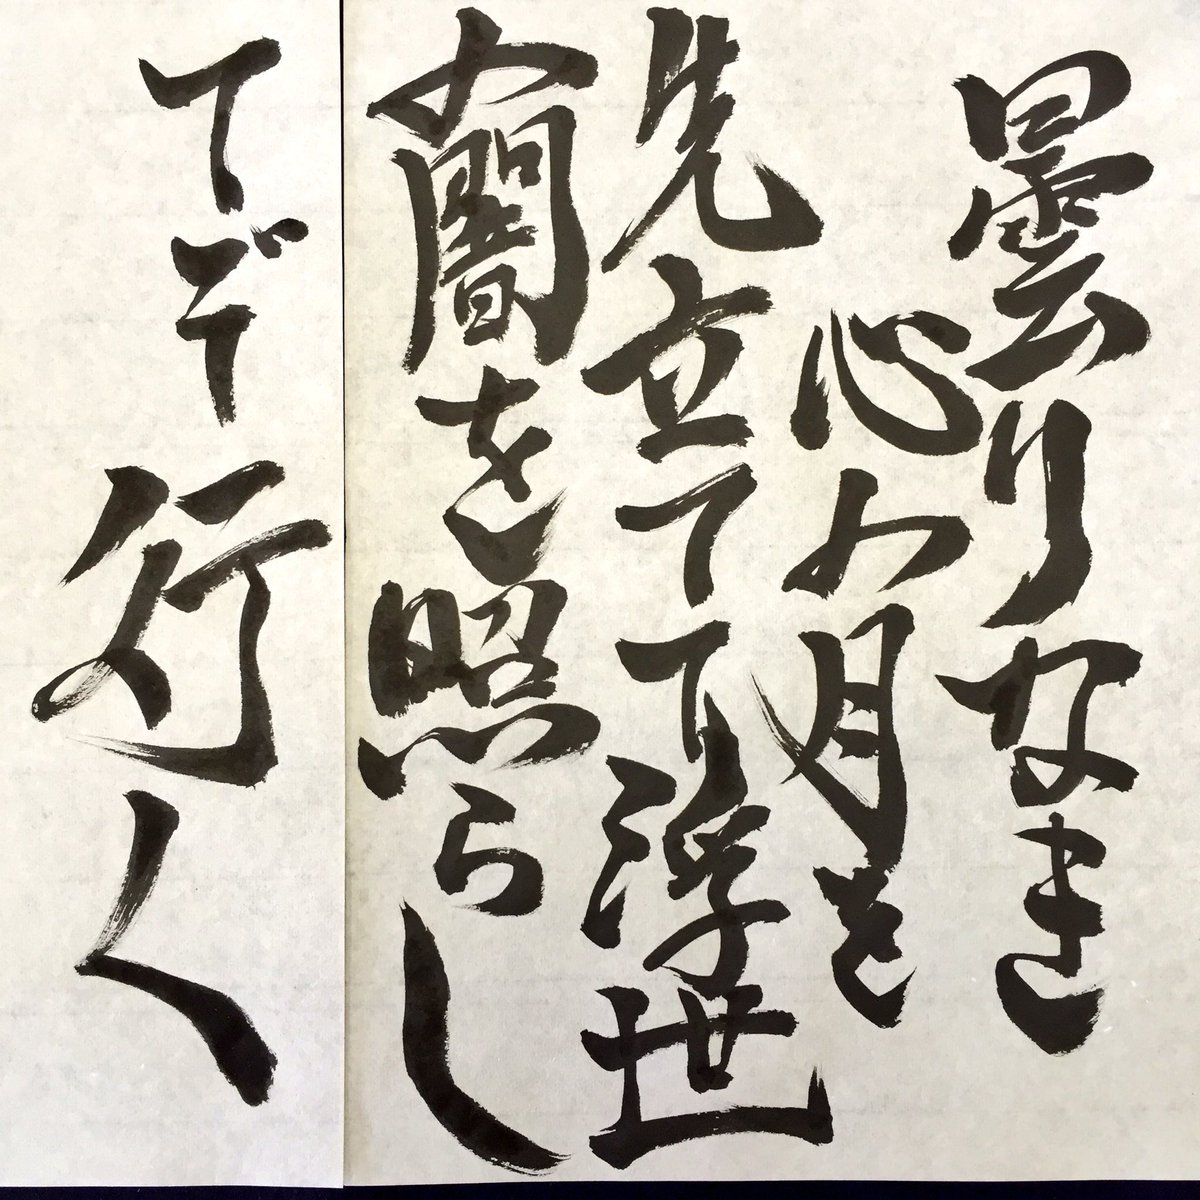 曇りなき
心の月を
先立てて浮世
の闇を照らし
てぞ行く